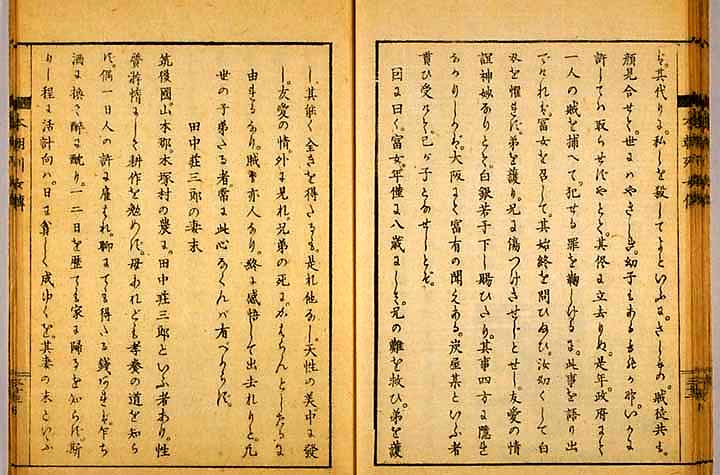 ぞ。其代りに。私しを殺してよといふに。さしもの。賊徒共も。
顔見合せて。世にはやさしき。幼子もあるものか。
許しては取らせばやとて。其侭立去りぬ。是年。政府にて
一人の賊を捕へて。犯せる罪を鞠しけるに。此事を語り出
でければ。富女を召して。其始終を問ひ給ひ。汝幼くして白
刃を懼れず。弟を護り。兄に傷つけさせじとせし。友愛の情
誼神妙なりとて。白銀若干下し賜ひたり。其事四方に隠れ
ありしかば。大阪にて富有の聞えある。炭屋某といふ者
貰ひ受けて。己が子となせしとぞ。
因に曰く。富女。年僅に八歳にして。兄の難を救ひ。弟を護
し。其能く全きを得たるも。是れ他なし。天性の美中に發
し。友愛の情外に見れ。兄弟の死にかはらんとしたるに
由るなり。賊も亦人なり。終に感悟して出去れりと。凡
世の子弟たる者。常に此心なくんば有べからず。
田中荘三郎の妻末
筑後國山本郡。木塚村の農に。田中荘三郎といふ者あり。性
質懶惰にして耕作を勉めず。母あれども孝養の道を知ら
ず。偶一日人の許に雇はれ。聊にても得たる錢あれば。乍ち
酒に換て醉に耽り。一二日を歴ても家に歸るを知らず。斯
りし程に活計向は。日に貧しく成ゆくを。其妻の末といふ
本朝列女傳